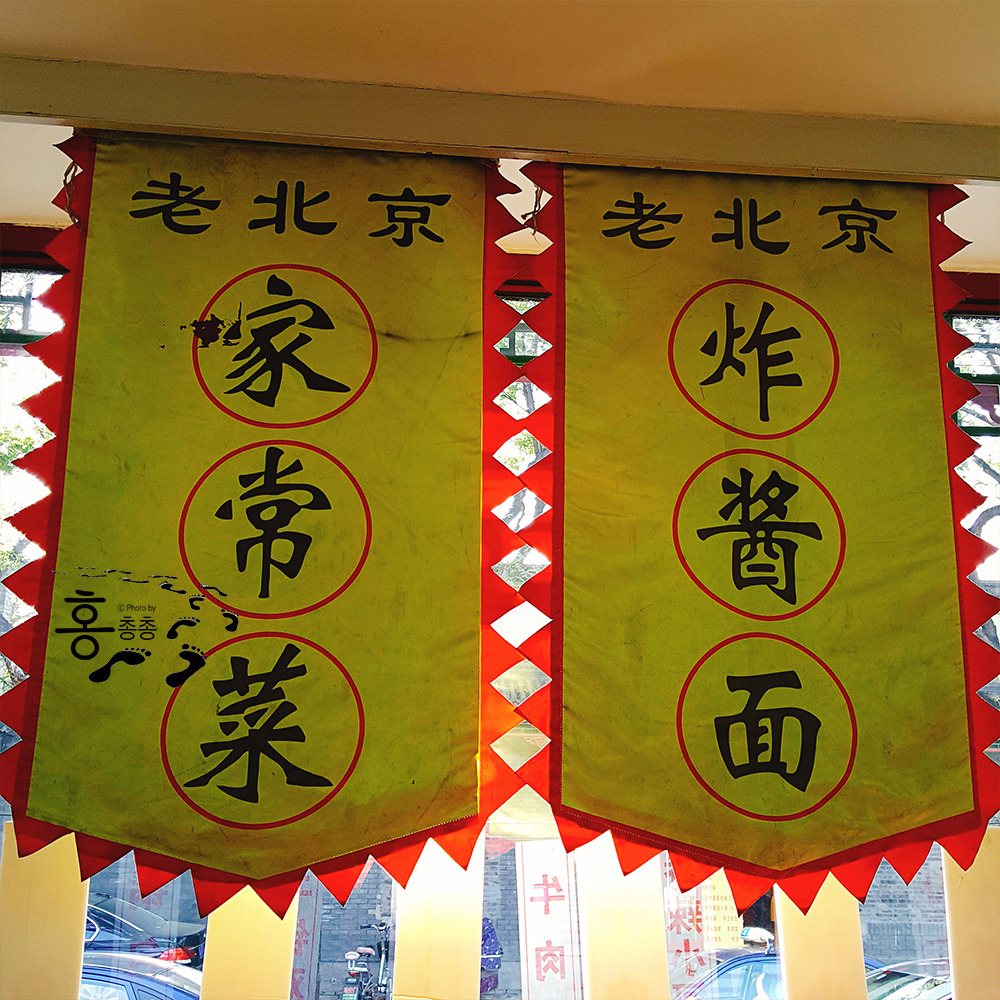 老北京
家
常
菜
老北京
炸
酱
面
© Photo by
홍
총총
牛
肉
辣
小